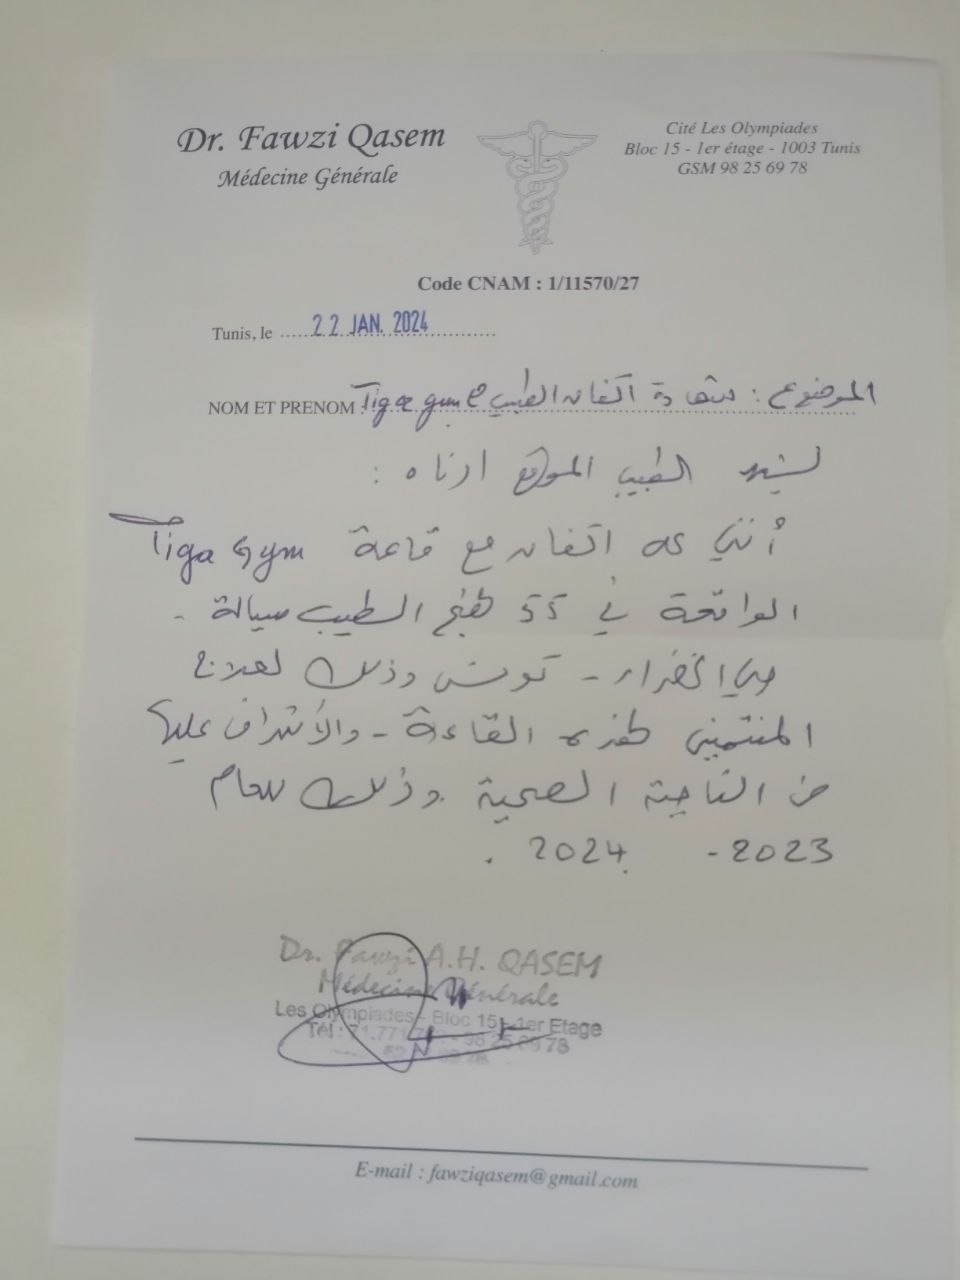 Dr. Fawzi Qasem
Médecine Générale
Cité Les Olympiades
Bloc 15 - 1er étage - 1003 Tunis
GSM 98 25 69 78
Code CNAM : 1/11570/27
Tunis, le 22 JAN. 2024
NOM ET PRENOM :
الموضوع : شهادة اتفاق الطبيب مع Tiga gym
يشهد الطبيب الموقع أدناه :
أنني على اتفاق مع قاعة Tiga Gym
الواقعة في 55 نهج الطيب سيالة -
حي الخضراء - تونس وذلك لعلاج
المنتمين لهذه القاعة - والأشراف عليها
من الناحية الصحية وذلك للعام
2023 - 2024 .
Dr. Fawzi A.H. QASEM
Médecine Générale
Les Olympiades - Bloc 15 - 1er Etage
Tél : 71.771 98 25 69 78
E-mail : fawziqasem@gmail.com